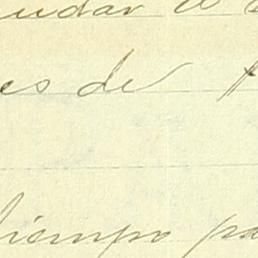 udar
es de
tiempo pa